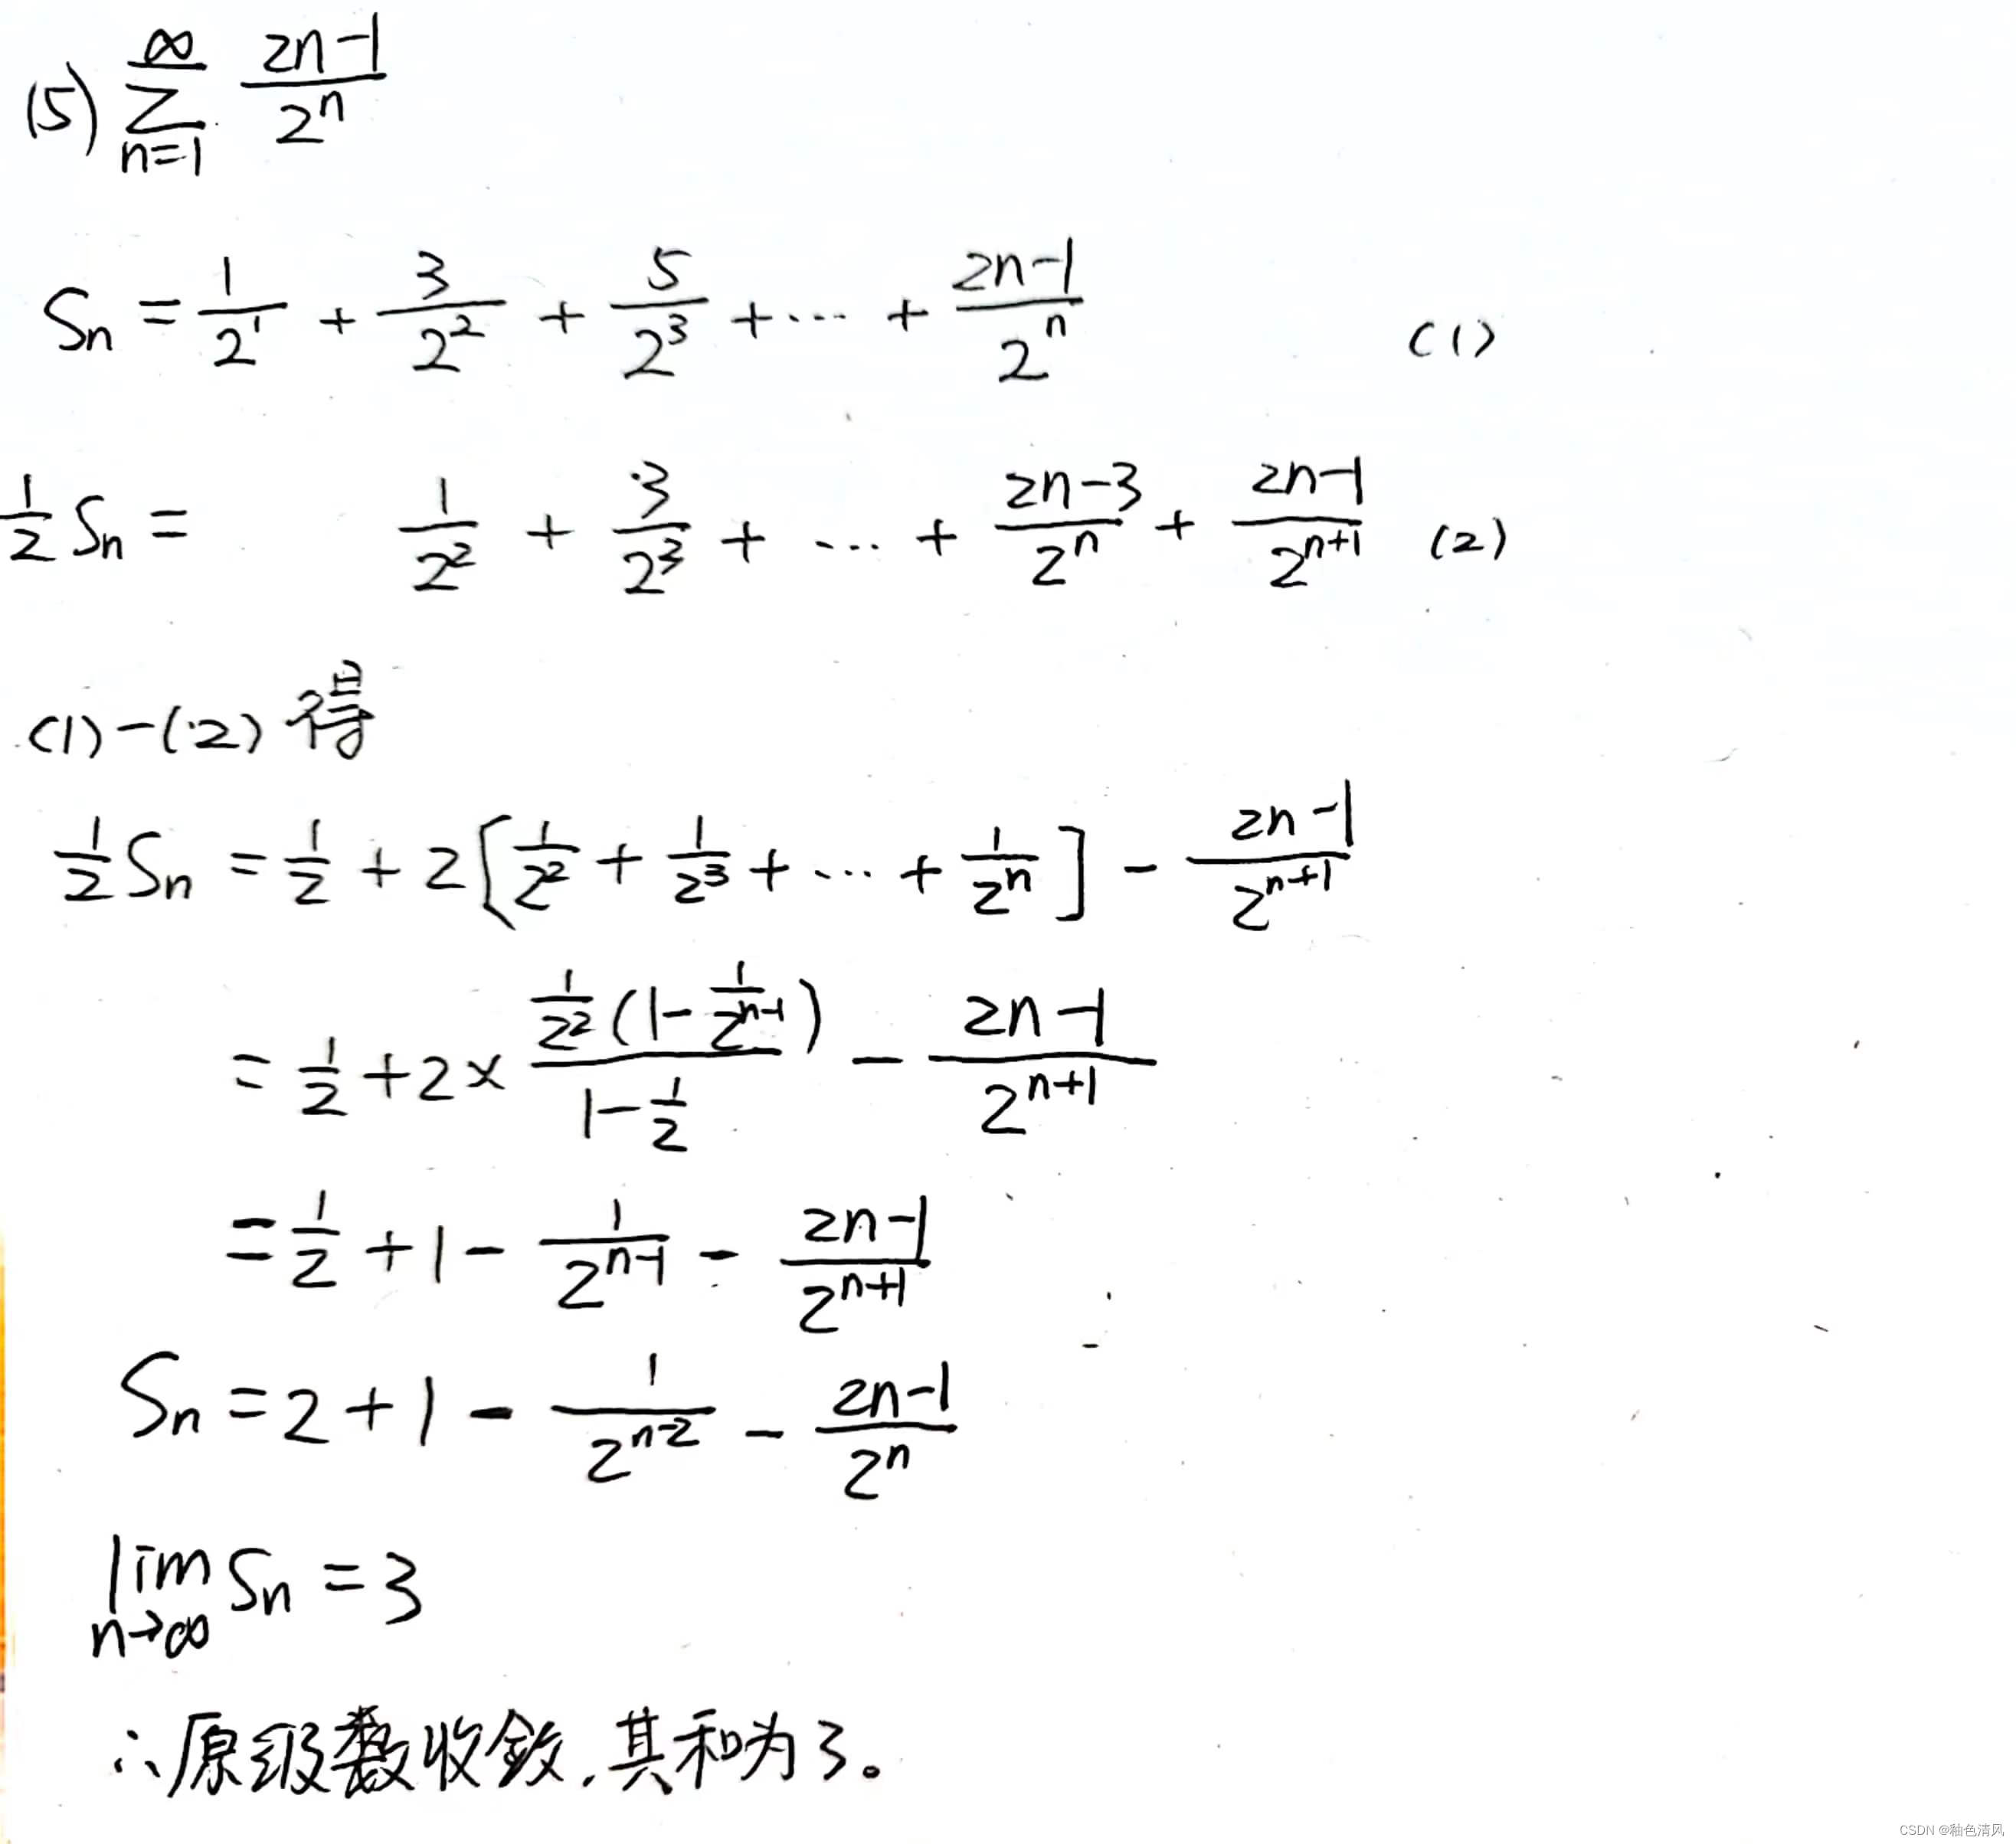 (5) ∑_{n=1}^{∞} (2n-1)/2^n
Sn = 1/2^1 + 3/2^2 + 5/2^3 + … + (2n-1)/2^n (1)
1/2 Sn = 1/2^2 + 3/2^3 + … + (2n-3)/2^n + (2n-1)/2^{n+1} (2)
(1)-(2) 得
1/2 Sn = 1/2 + 2[1/2^2 + 1/2^3 + … + 1/2^n] - (2n-1)/2^{n+1}
= 1/2 + 2 × (1/2^2 (1 - 1/2^{n-1}))/(1 - 1/2) - (2n-1)/2^{n+1}
= 1/2 + 1 - 1/2^{n-1} - (2n-1)/2^{n+1}
Sn = 2 + 1 - 1/2^{n-2} - (2n-1)/2^n
lim_{n→∞} Sn = 3
∴原级数收敛,其和为3。
CSDN @釉色清风